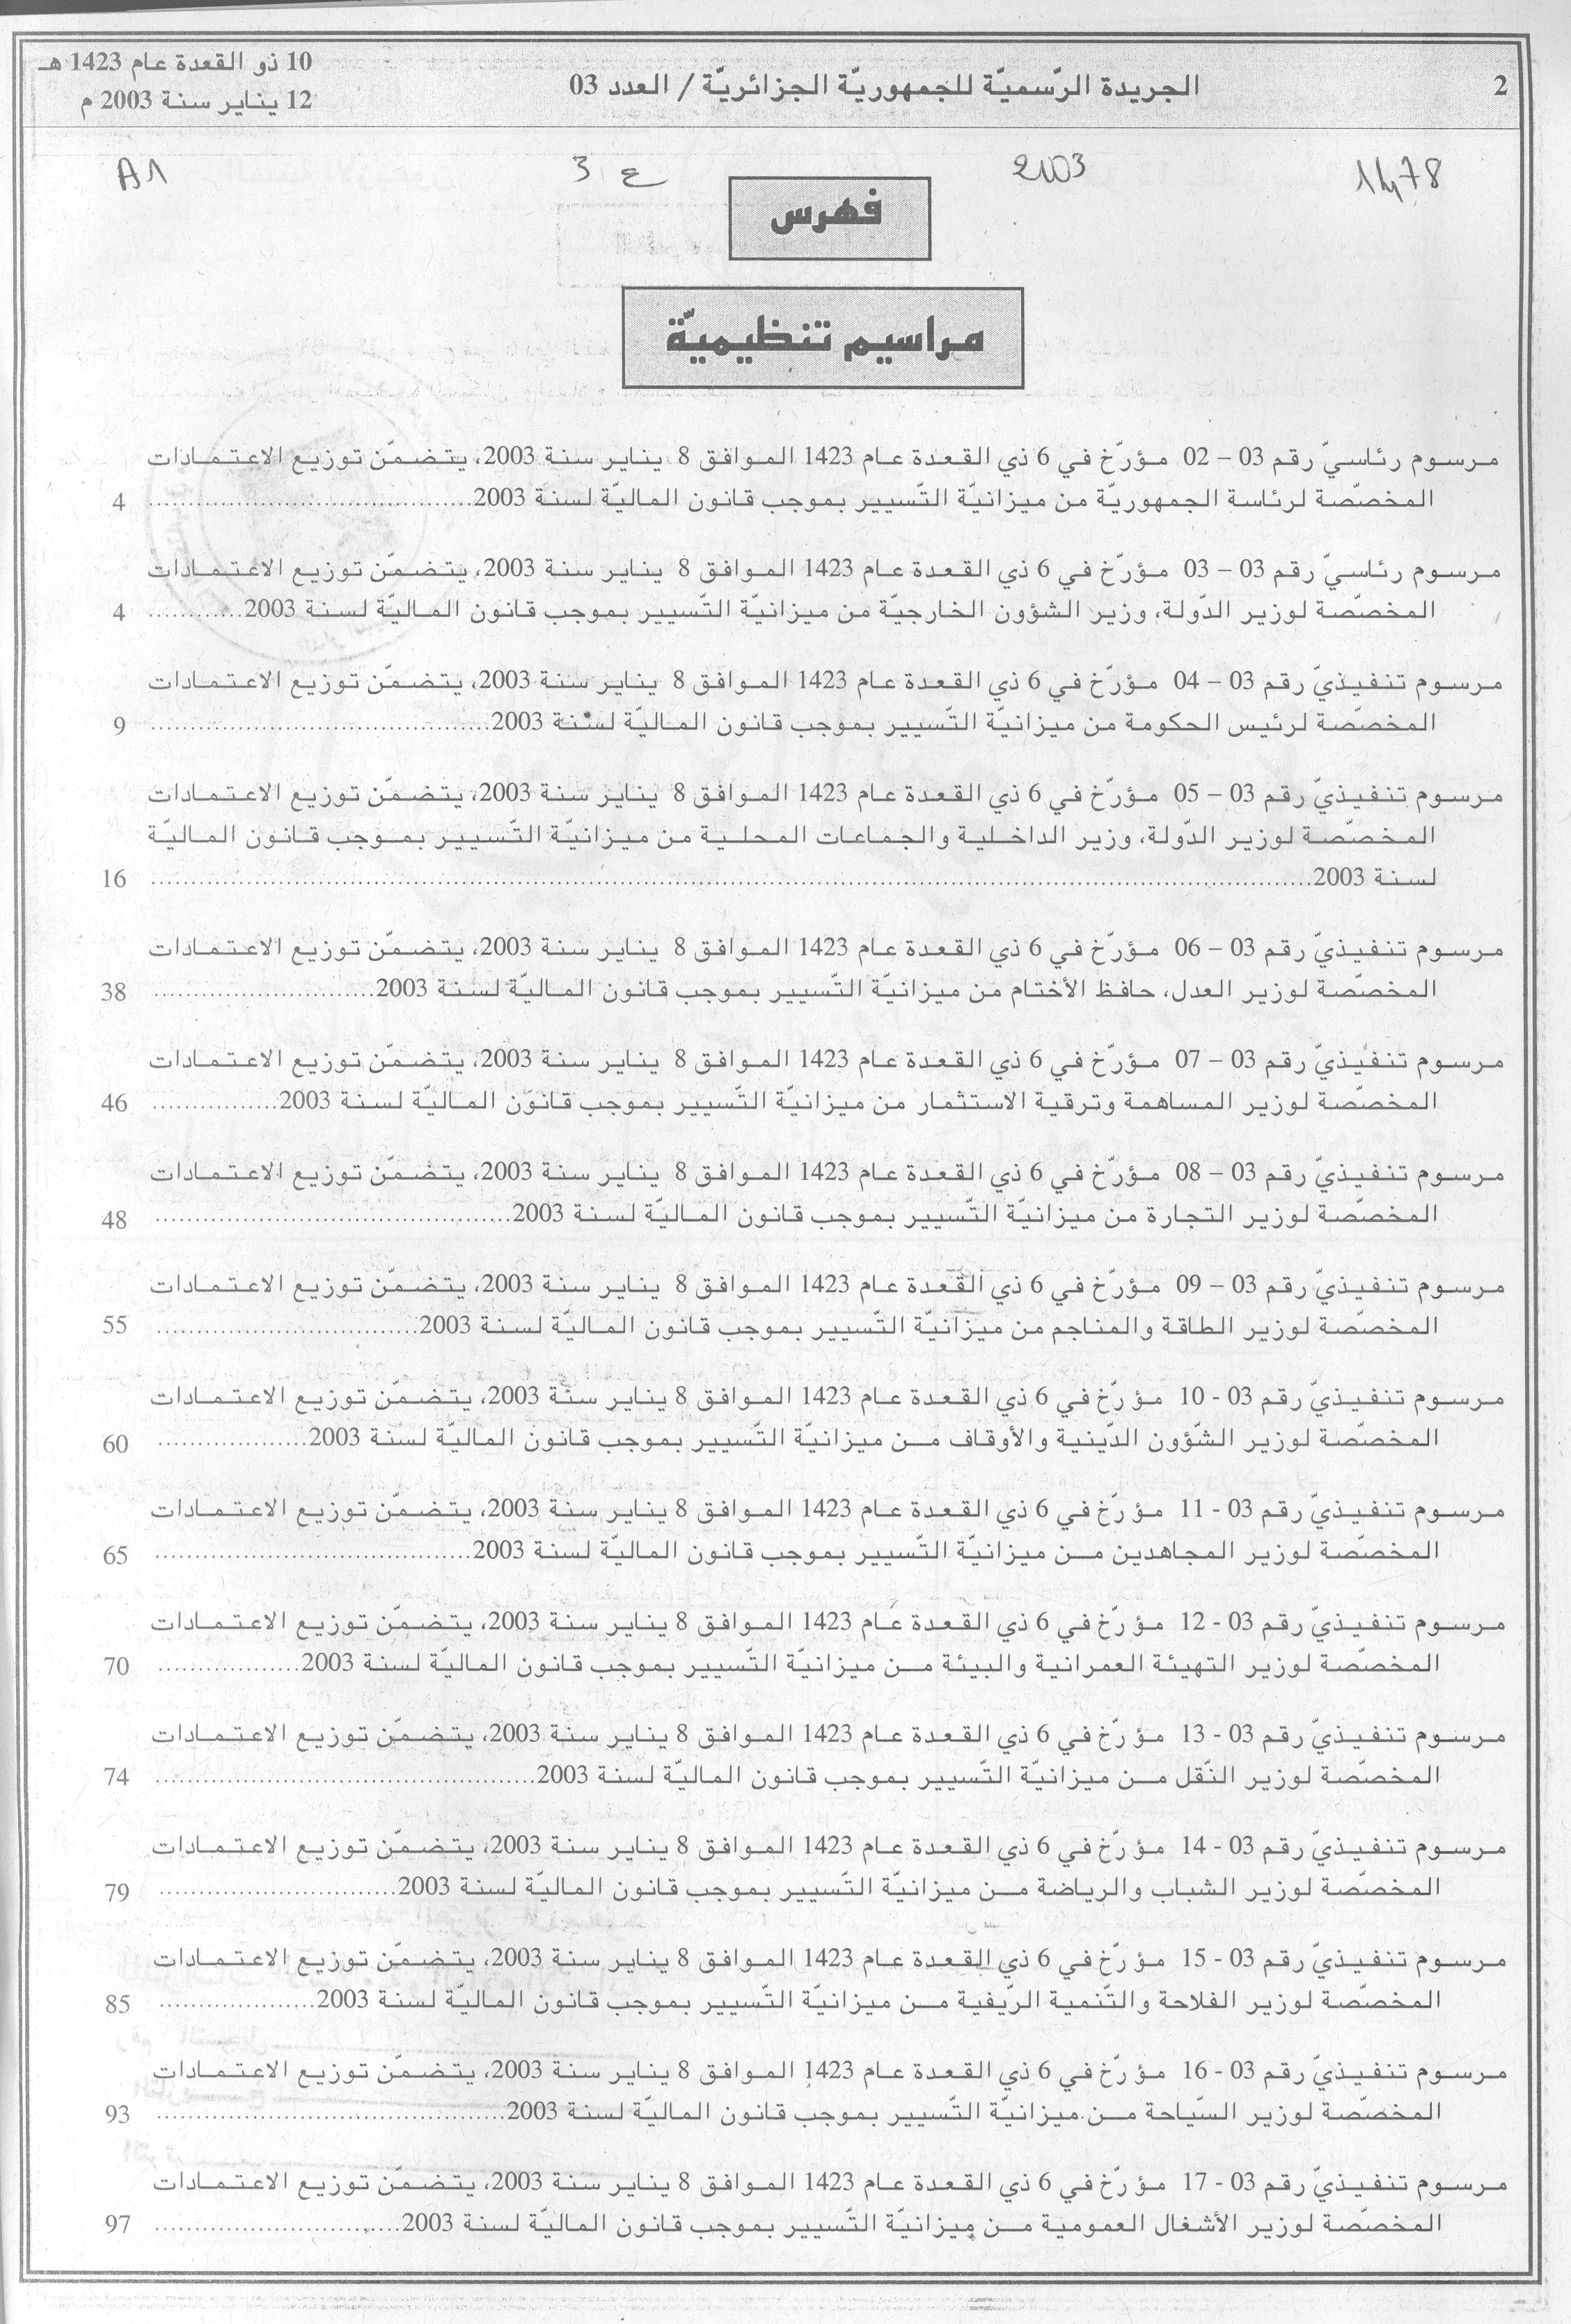 2
الجريدة الرّسميّة للجمهوريّة الجزائريّة / العدد 03
10 ذو القعدة عام 1423 هـ
12 يناير سنة 2003 م
1478
2003
ع 3
A1
فهرس
مراسيم تنظيميّة
مرسوم رئاسيّ رقم 03 – 02 مؤرّخ في 6 ذي القعدة عام 1423 الموافق 8 يناير سنة 2003، يتضمّن توزيع الاعتمادات
المخصّصة لرئاسة الجمهوريّة من ميزانيّة التّسيير بموجب قانون الماليّة لسنة 2003........................................ 4
مرسوم رئاسيّ رقم 03 – 03 مؤرّخ في 6 ذي القعدة عام 1423 الموافق 8 يناير سنة 2003، يتضمّن توزيع الاعتمادات
المخصّصة لوزير الدّولة، وزير الشؤون الخارجيّة من ميزانيّة التّسيير بموجب قانون الماليّة لسنة 2003............ 4
مرسوم تنفيذيّ رقم 03 – 04 مؤرّخ في 6 ذي القعدة عام 1423 الموافق 8 يناير سنة 2003، يتضمّن توزيع الاعتمادات
المخصّصة لرئيس الحكومة من ميزانيّة التّسيير بموجب قانون الماليّة لسنة 2003.......................................... 9
مرسوم تنفيذيّ رقم 03 – 05 مؤرّخ في 6 ذي القعدة عام 1423 الموافق 8 يناير سنة 2003، يتضمّن توزيع الاعتمادات
المخصّصة لوزير الدّولة، وزير الداخلية والجماعات المحلية من ميزانيّة التّسيير بموجب قانون الماليّة
لسنة 2003................................................................................ 16
مرسوم تنفيذيّ رقم 03 – 06 مؤرّخ في 6 ذي القعدة عام 1423 الموافق 8 يناير سنة 2003، يتضمّن توزيع الاعتمادات
المخصّصة لوزير العدل، حافظ الأختام من ميزانيّة التّسيير بموجب قانون الماليّة لسنة 2003............................ 38
مرسوم تنفيذيّ رقم 03 – 07 مؤرّخ في 6 ذي القعدة عام 1423 الموافق 8 يناير سنة 2003، يتضمّن توزيع الاعتمادات
المخصّصة لوزير المساهمة وترقية الاستثمار من ميزانيّة التّسيير بموجب قانون الماليّة لسنة 2003................ 46
مرسوم تنفيذيّ رقم 03 – 08 مؤرّخ في 6 ذي القعدة عام 1423 الموافق 8 يناير سنة 2003، يتضمّن توزيع الاعتمادات
المخصّصة لوزير التجارة من ميزانيّة التّسيير بموجب قانون الماليّة لسنة 2003............................................ 48
مرسوم تنفيذيّ رقم 03 – 09 مؤرّخ في 6 ذي القعدة عام 1423 الموافق 8 يناير سنة 2003، يتضمّن توزيع الاعتمادات
المخصّصة لوزير الطاقة والمناجم من ميزانيّة التّسيير بموجب قانون الماليّة لسنة 2003................................ 55
مرسوم تنفيذيّ رقم 03 - 10 مؤرّخ في 6 ذي القعدة عام 1423 الموافق 8 يناير سنة 2003، يتضمّن توزيع الاعتمادات
المخصّصة لوزير الشّؤون الدّينية والأوقاف من ميزانيّة التّسيير بموجب قانون الماليّة لسنة 2003................... 60
مرسوم تنفيذيّ رقم 03 - 11 مؤرّخ في 6 ذي القعدة عام 1423 الموافق 8 يناير سنة 2003، يتضمّن توزيع الاعتمادات
المخصّصة لوزير المجاهدين من ميزانيّة التّسيير بموجب قانون الماليّة لسنة 2003........................................ 65
مرسوم تنفيذيّ رقم 03 - 12 مؤرّخ في 6 ذي القعدة عام 1423 الموافق 8 يناير سنة 2003، يتضمّن توزيع الاعتمادات
المخصّصة لوزير التهيئة العمرانية والبيئة من ميزانيّة التّسيير بموجب قانون الماليّة لسنة 2003.................. 70
مرسوم تنفيذيّ رقم 03 - 13 مؤرّخ في 6 ذي القعدة عام 1423 الموافق 8 يناير سنة 2003، يتضمّن توزيع الاعتمادات
المخصّصة لوزير النّقل من ميزانيّة التّسيير بموجب قانون الماليّة لسنة 2003................................................ 74
مرسوم تنفيذيّ رقم 03 - 14 مؤرّخ في 6 ذي القعدة عام 1423 الموافق 8 يناير سنة 2003، يتضمّن توزيع الاعتمادات
المخصّصة لوزير الشباب والرياضة من ميزانيّة التّسيير بموجب قانون الماليّة لسنة 2003.............................. 79
مرسوم تنفيذيّ رقم 03 - 15 مؤرّخ في 6 ذي القعدة عام 1423 الموافق 8 يناير سنة 2003، يتضمّن توزيع الاعتمادات
المخصّصة لوزير الفلاحة والتّنمية الرّيفية من ميزانيّة التّسيير بموجب قانون الماليّة لسنة 2003.................... 85
مرسوم تنفيذيّ رقم 03 - 16 مؤرّخ في 6 ذي القعدة عام 1423 الموافق 8 يناير سنة 2003، يتضمّن توزيع الاعتمادات
المخصّصة لوزير السّياحة من ميزانيّة التّسيير بموجب قانون الماليّة لسنة 2003............................................ 93
مرسوم تنفيذيّ رقم 03 - 17 مؤرّخ في 6 ذي القعدة عام 1423 الموافق 8 يناير سنة 2003، يتضمّن توزيع الاعتمادات
المخصّصة لوزير الأشغال العمومية من ميزانيّة التّسيير بموجب قانون الماليّة لسنة 2003............................... 97